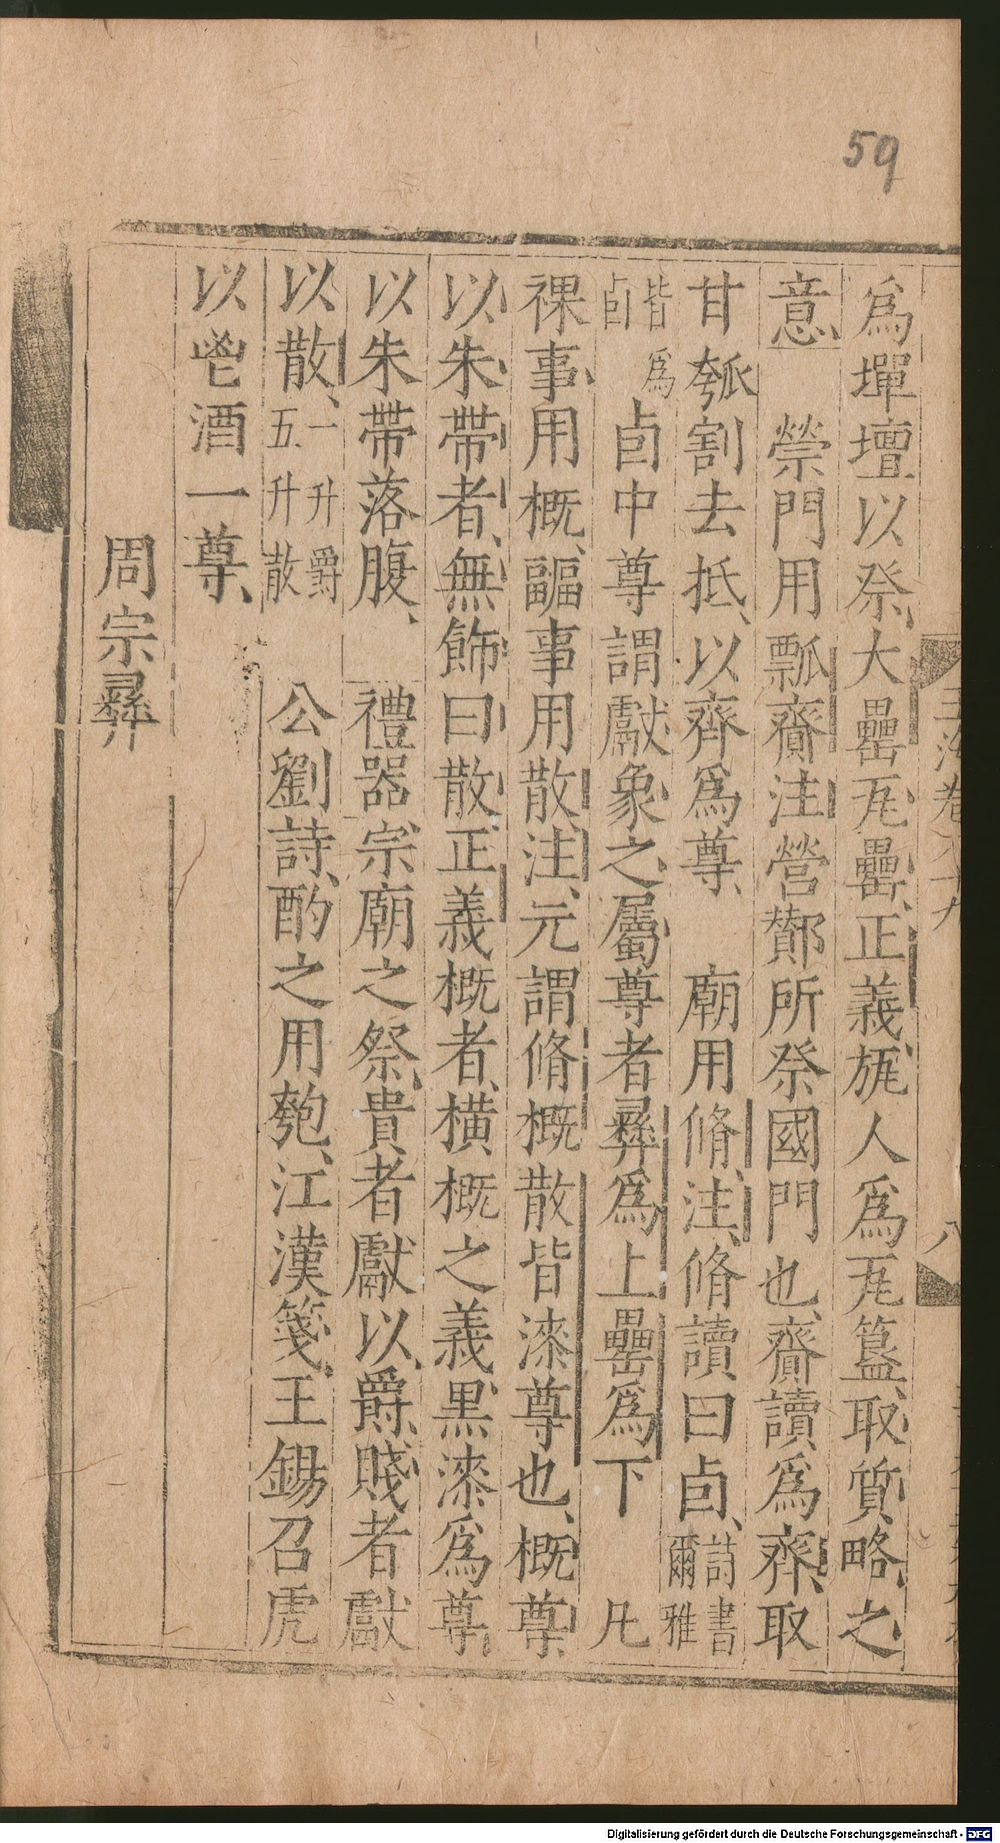 59
玉海卷八十九
八
爲墠壇以祭大罍瓦罍正義㼚人爲瓦簋取質略之
意 禜門用瓢齎注營酇所祭國門也齎讀爲齊取
甘瓠割去抵以齊爲尊 廟用脩注脩讀曰卣詩書爾雅
皆爲卣 卣中尊謂獻象之屬尊者彝爲上罍爲下 凡
祼事用概疈事用散注元謂脩概散皆漆尊也概尊
以朱帶者無飾曰散正義概者橫概之義黑漆爲尊
以朱帶落腹 禮器宗廟之祭貴者獻以爵賤者獻
以散一升爵五升散 公劉詩酌之用匏江漢箋王錫召虎
以鬯酒一尊
周宗彝
Digitalisierung gefördert durch die Deutsche Forschungsgemeinschaft - DFG